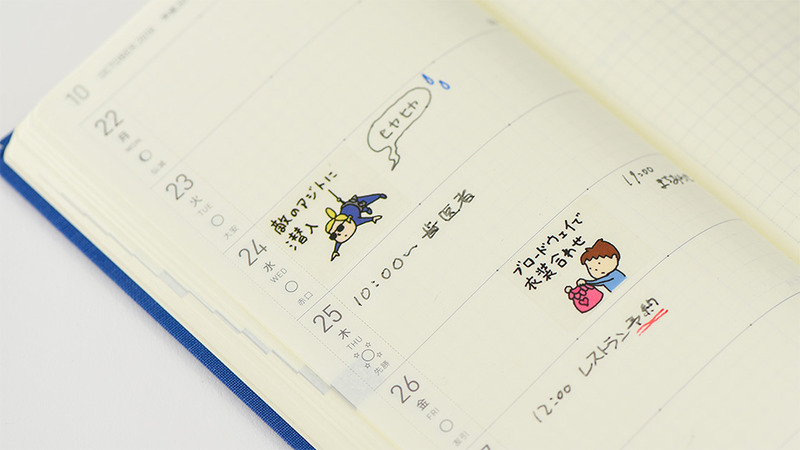 10 OCTOBER 2018
22
月
MON
ヒヤヒヤ
23
火
TUE
大安
敵のアジトに
潜入
24
水
WED
赤口
10:00〜 歯医者
19:00
25
木
THU
先勝
ブロードウェイで
衣装合わせ
26
金
FRI
友引
12:00 レストラン予約